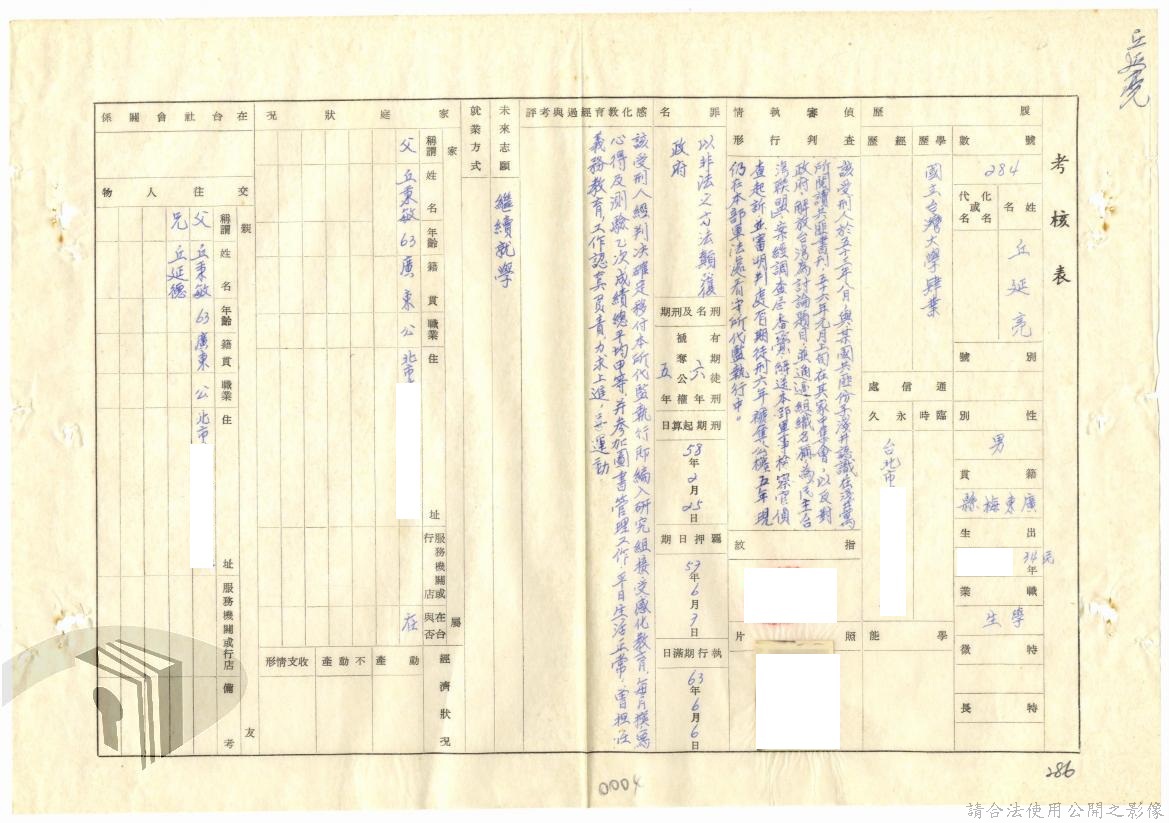 丘延亮
考核表
履歷
號數
284
姓名
化名或代名
丘延亮
別號
性別
男
籍貫
廣東梅縣
出生
34年
職業
學生
特徵
特長
學歷
經歷
國立台灣大學肄業
通信處
臨時
永久
台北市
學能
偵查審判執行情形
該受刑人於五十三年八月,與某國共匪份子淺井認識在淺井寓
所閱讀共匪書刊,五十六年元月上旬在其家中集會,以反對
政府解放台灣為討論題目並通過組織名稱為民主台
灣聯盟,案經調查局查獲,解送本部軍事檢察官偵
查起訴並審明判處有期徒刑六年,褫奪公權五年現
仍在本部軍法處看守所代監執行中。
指紋
照片
罪名
以非法之方法顛覆
政府
刑名及刑期
有期徒刑六年
褫奪公權五年
刑期起算日
58年2月25日
羈押日期
57年6月7日
執行期滿日
63年6月6日
感化教育經過與考評
該受刑人經判決確定移付本所代監執行即編入研究組接受感化教育,每月撰寫
心得及測驗乙次成績總平均甲等,并參加圖書管理工作,平日生活正常,曾担任
義務教育,工作認真負責力求上進,喜運動
未來志願
就業方式
繼續就學
家庭狀況
家屬
稱謂
姓名
年齡
籍貫
職業
住址
服務機關或行店
在台與否
父 丘秉敏 63 廣東 公 北市 在
經濟狀況
動產
不動產
收支情形
在台社會關係
交往人物
親友
稱謂
姓名
年齡
籍貫
職業
住址
服務機關或行店
備考
父 丘秉敏 63 廣東 公 北市
兄 丘延德
0004
286
請合法使用公開之影像